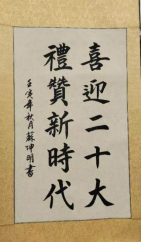 喜迎二十大
禮贊新時代
壬寅年秋月蘇坤明書